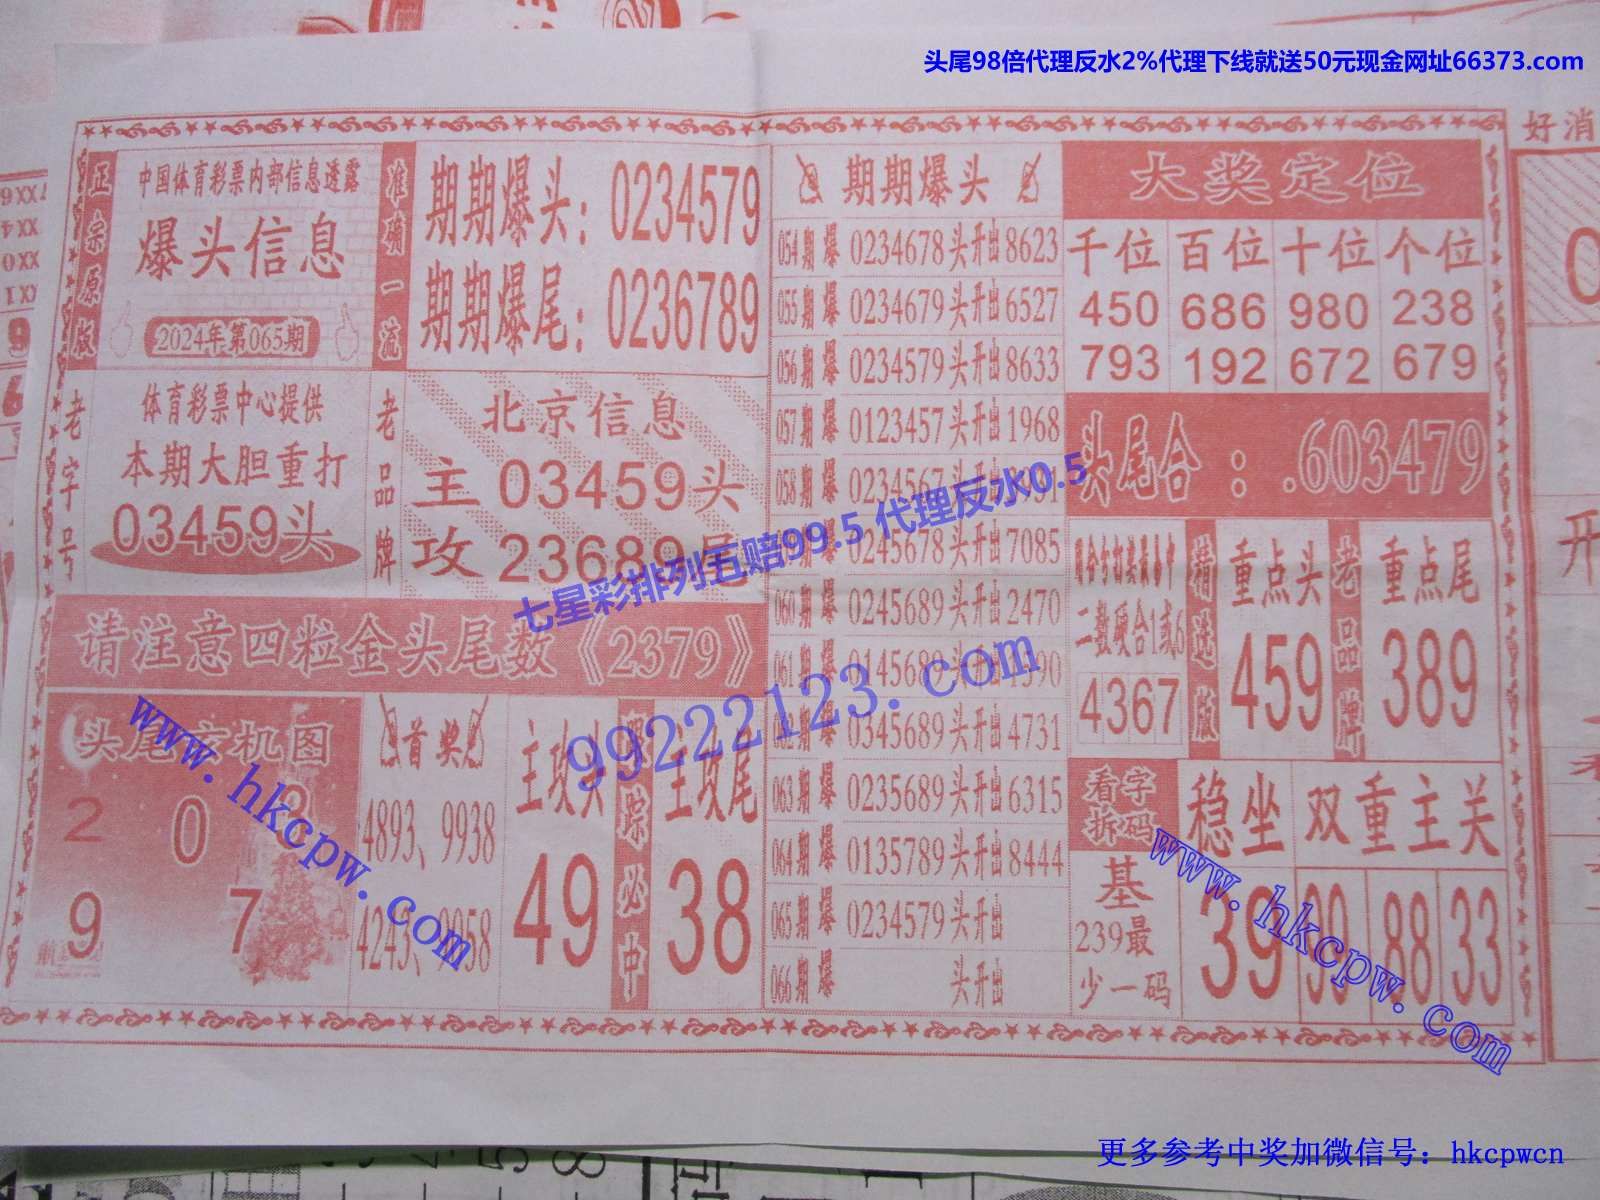 头尾98倍代理反水2%代理下线就送50元现金网址66373.com
好消
正宗原版
中国体育彩票内部信息透露
爆头信息
2024年第065期
准确一流
期期爆头：0234579
期期爆尾：0236789
老字号
体育彩票中心提供
本期大胆重打
03459头
老品牌
北京信息
主 03459头
攻 23689尾
请注意四粒金头尾数《2379》
头尾玄机图
2 0 8
9 7
首奖
4893、9938
4243、9958
主攻头
49
跟踪必中
主攻尾
38
期期爆头
054期 爆 0234678头开出8623
055期 爆 0234679头开出6527
056期 爆 0234579头开出8633
057期 爆 0123457头开出1968
058期 爆 0234567头开出
爆 0245678头开出7085
060期 爆 0245689头开出2470
061期 爆 0145689头开出1390
062期 爆 0345689头开出4731
063期 爆 0235689头开出6315
064期 爆 0135789头开出8444
065期 爆 0234579头开出
066期 爆 头开出
大奖定位
千位 百位 十位 个位
450 686 980 238
793 192 672 679
头尾合：.603479
二数硬合1或6
4367
精选版
重点头
459
老品牌
重点尾
389
看字拆码
基
239最
少一码
稳坐
39
双重主关
99 88 33
开
七星彩排列五赔99.5 代理反水0.5
99222123.com
www.hkcpw.com
www.hkcpw.com
更多参考中奖加微信号：hkcpwcn